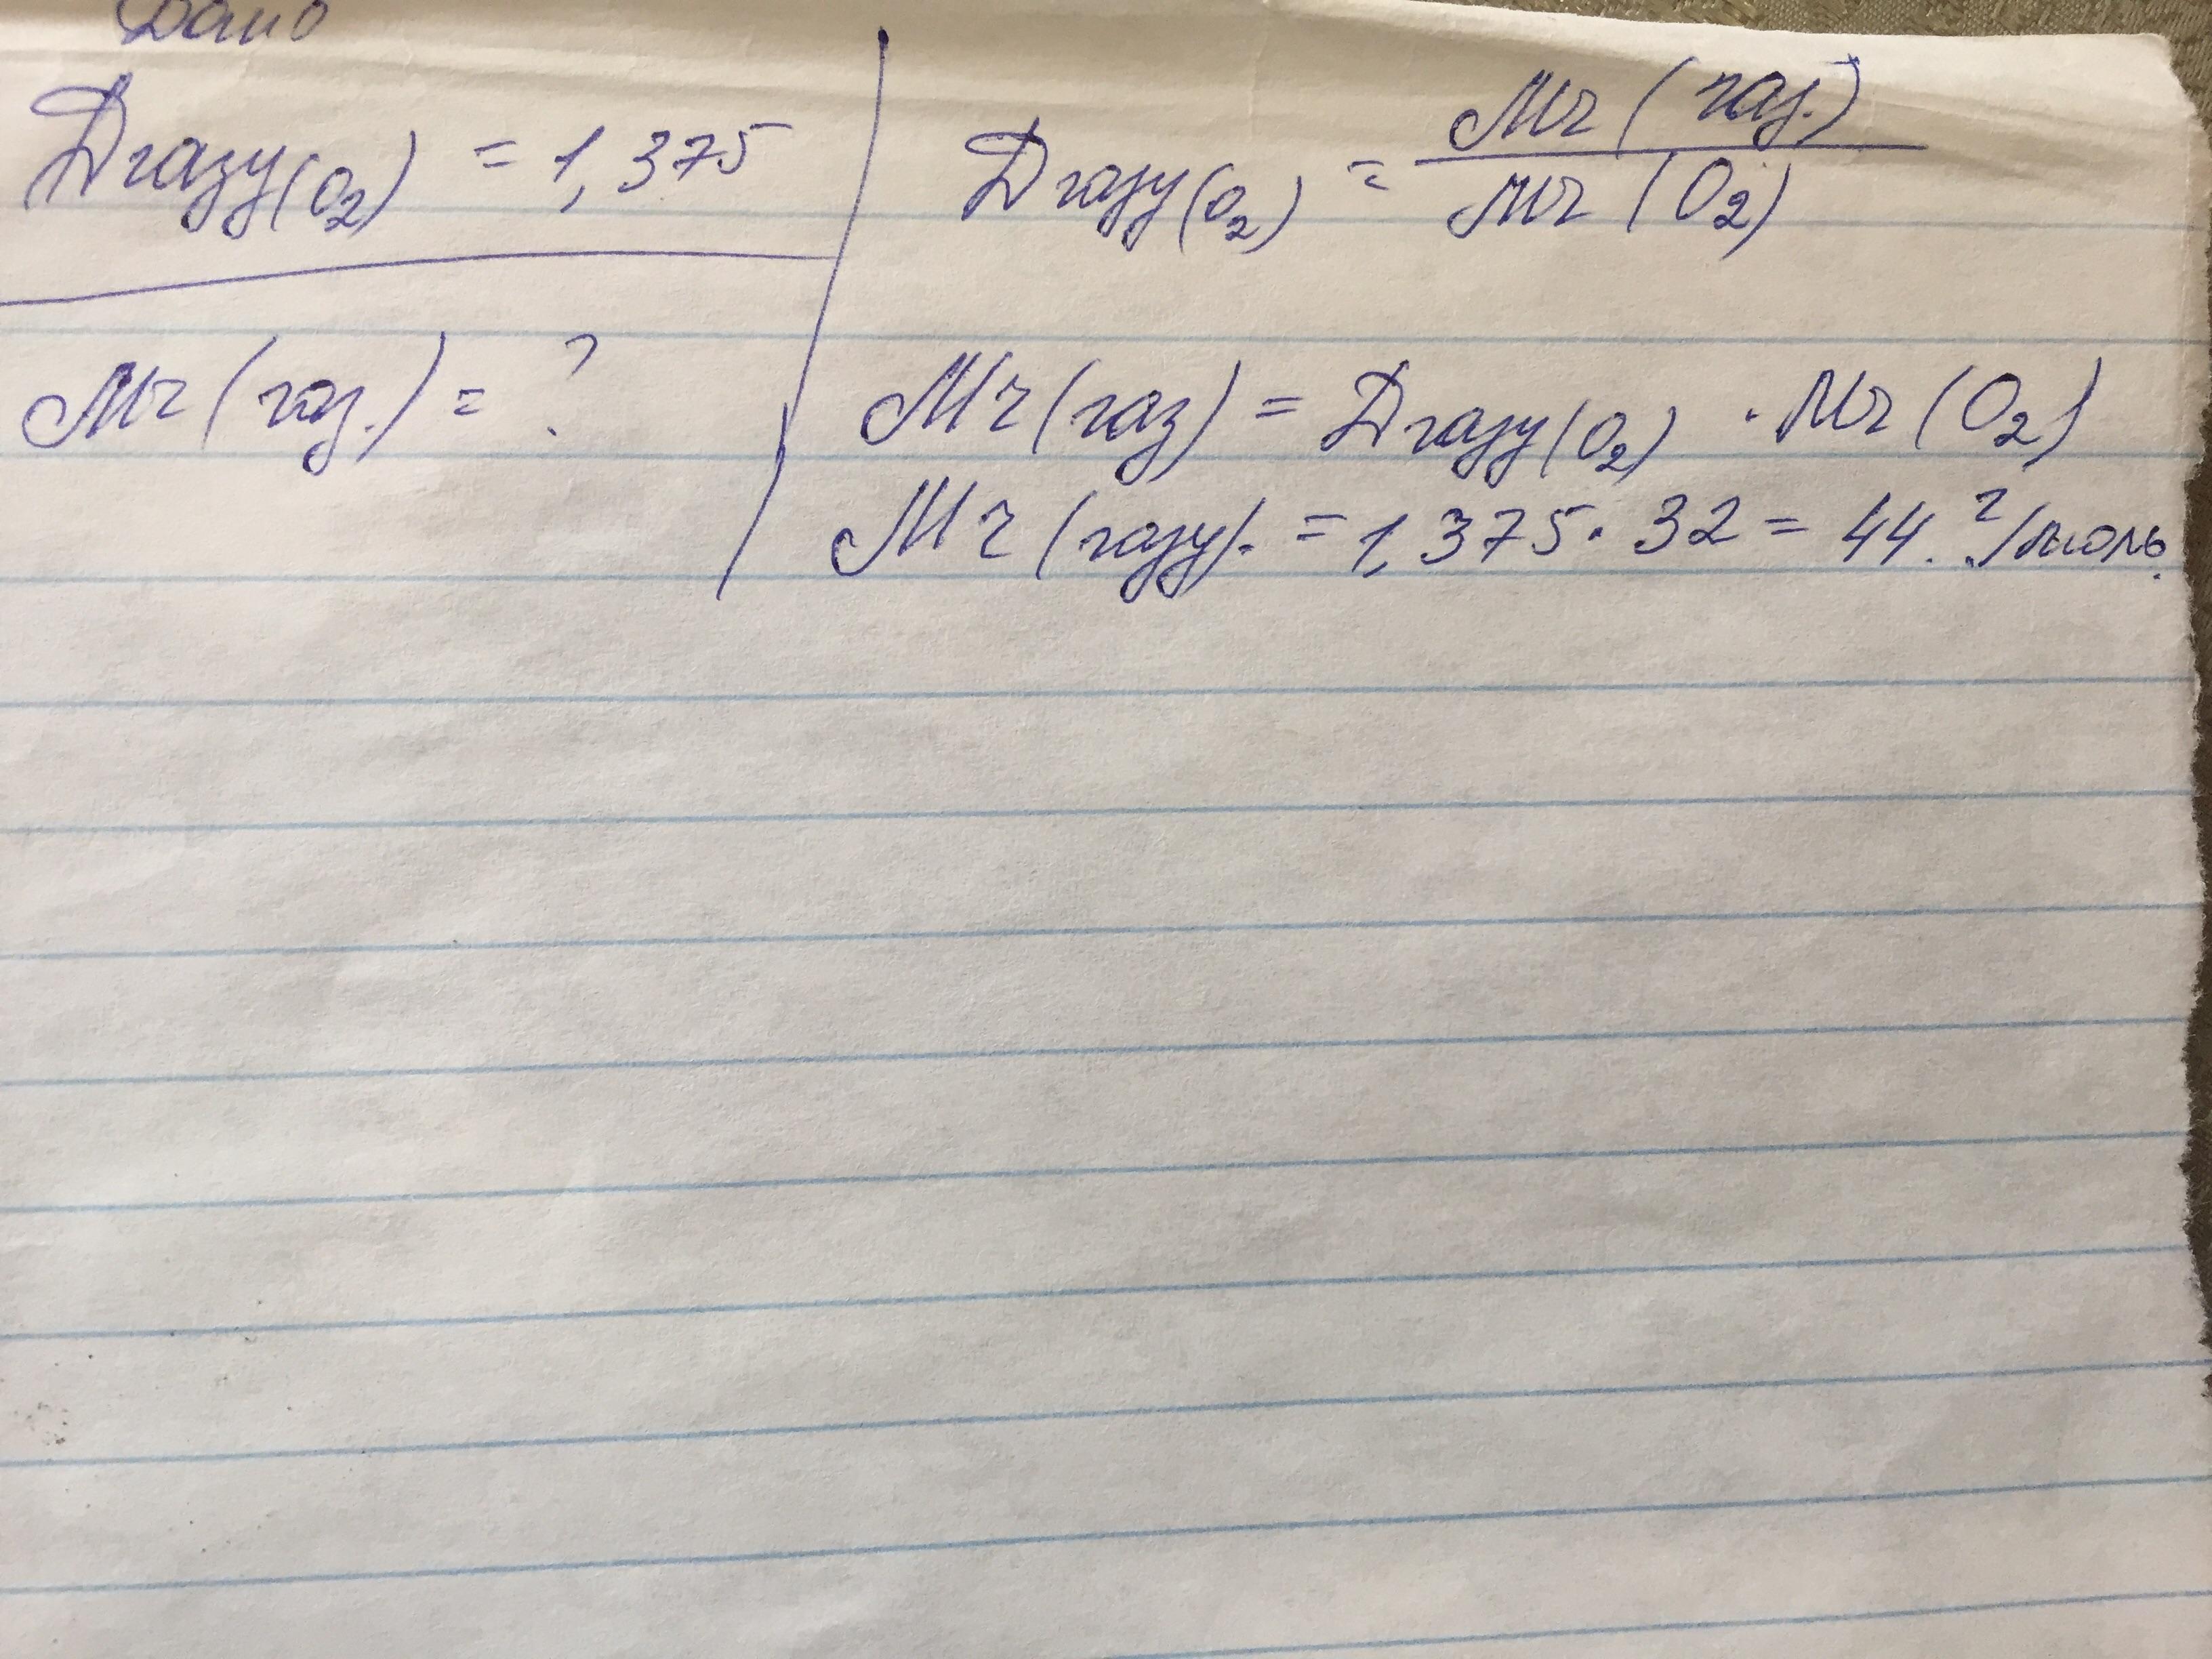 Дано
Dгазу(O₂) = 1,375
Mr (газ.) = ?
Dгазу(O₂) = Mr (газ.) / Mr (O₂)
Mr (газ) = Dгазу(O₂) · Mr (O₂)
Mr (газу). = 1,375 · 32 = 44. г/моль.